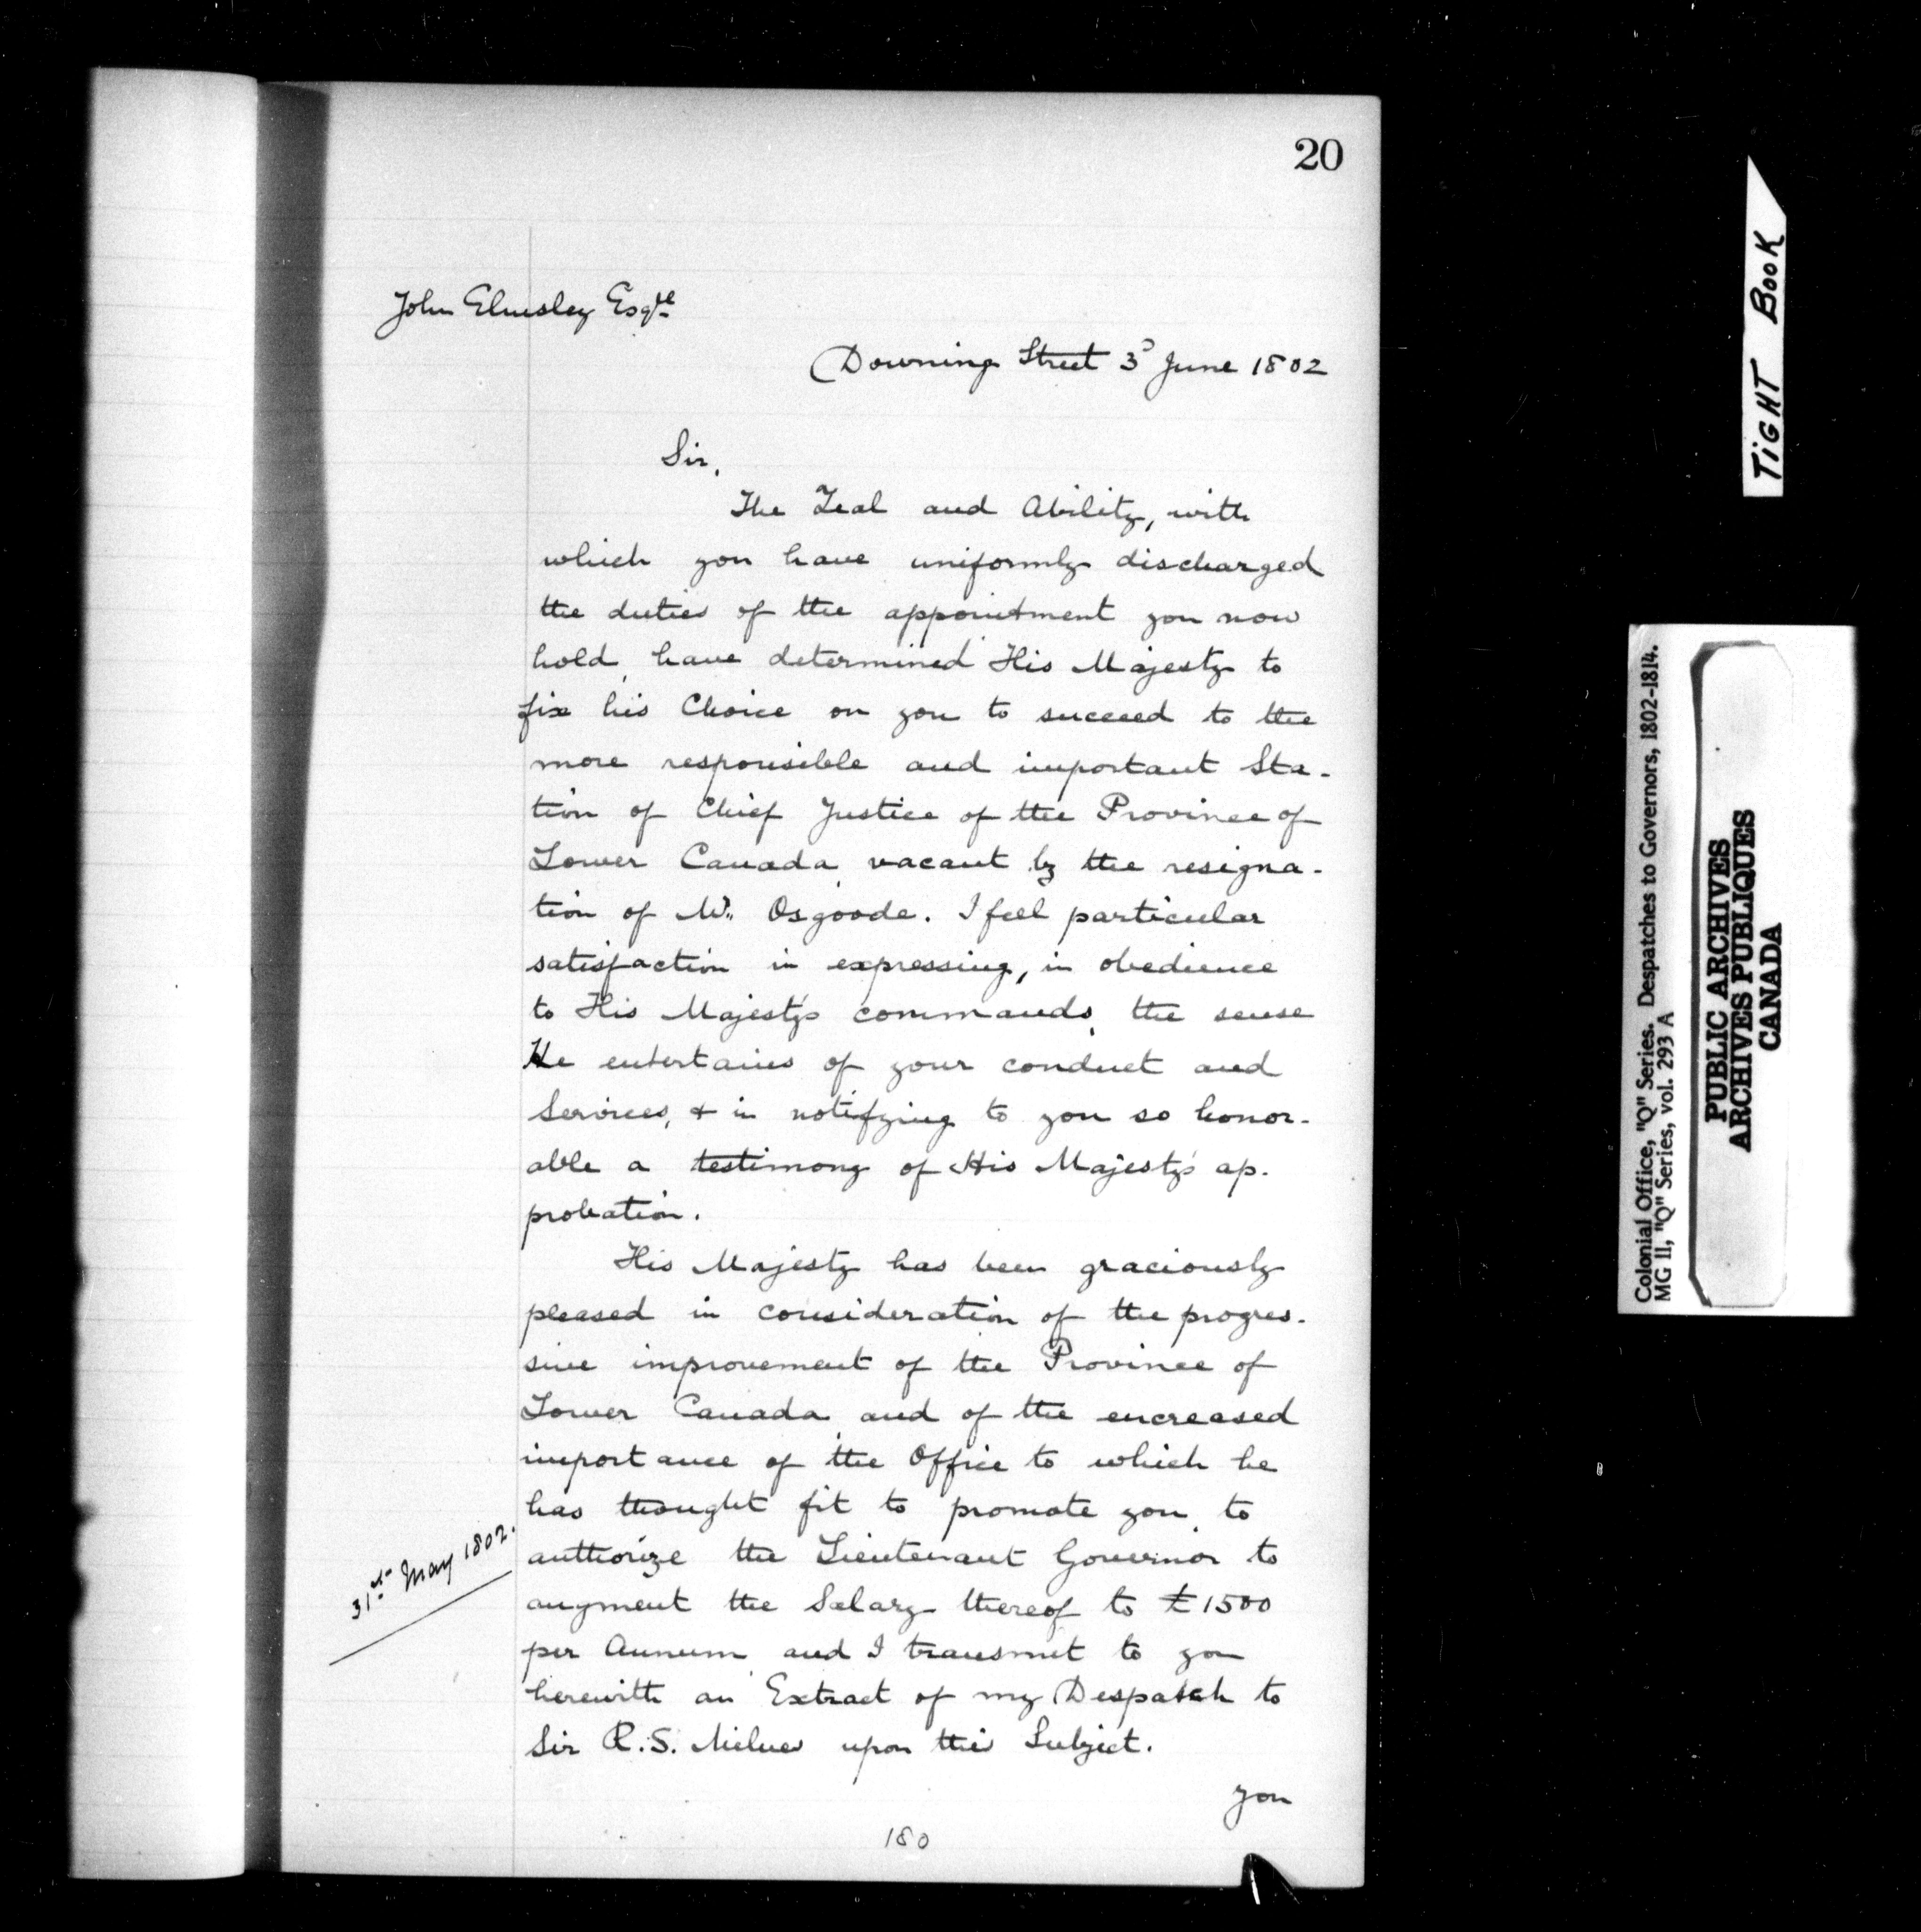 20
John Elmsley Esqre
Downing Street 3d June 1802
Sir,
The Zeal and Ability, with
which you have uniformly discharged
the duties of the appointment you now
hold, have determined His Majesty to
fix his Choice on you to succeed to the
more responsible and important Sta-
tion of Chief Justice of the Province of
Lower Canada, vacant by the resigna-
tion of Mr. Osgoode. I feel particular
satisfaction in expressing, in obedience
to His Majesty's commands, the sense
He entertains of your conduct and
Services, & in notifying to you so honor-
able a testimony of His Majesty's ap-
probation.
His Majesty has been graciously
pleased in consideration of the progres-
sive improvement of the Province of
Lower Canada, and of the encreased
importance of the Office to which he
has thought fit to promote you, to
authorize the Lieutenant Governor to
augment the Salary thereof to £1500
per Annum, and I transmit to you
herewith an Extract of my Despatch to
Sir R.S. Milnes upon this Subject.
31st May 1802.
you
180
TIGHT BOOK
Colonial Office, "Q" Series. Despatches to Governors, 1802-1814.
MG 11, "Q" Series, vol. 293 A
PUBLIC ARCHIVES
ARCHIVES PUBLIQUES
CANADA